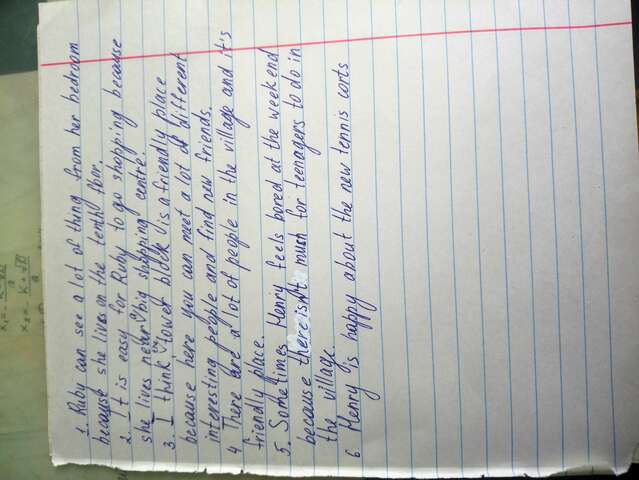 1. Ruby can see a lot of thing from her bedroom
because she lives on the tenth floor.
2. It is easy for Ruby to go shopping because
she lives near a big shopping centre.
3. I think the tower block is a friendly place
because here you can meet a lot of different
interesting people and find new friends.
4 There are a lot of people in the village and it's
friendly place.
5. Sometimes Henry feels bored at the weekend
because there isn't much for teenagers to do in
the village.
6 Henry is happy about the new tennis corts